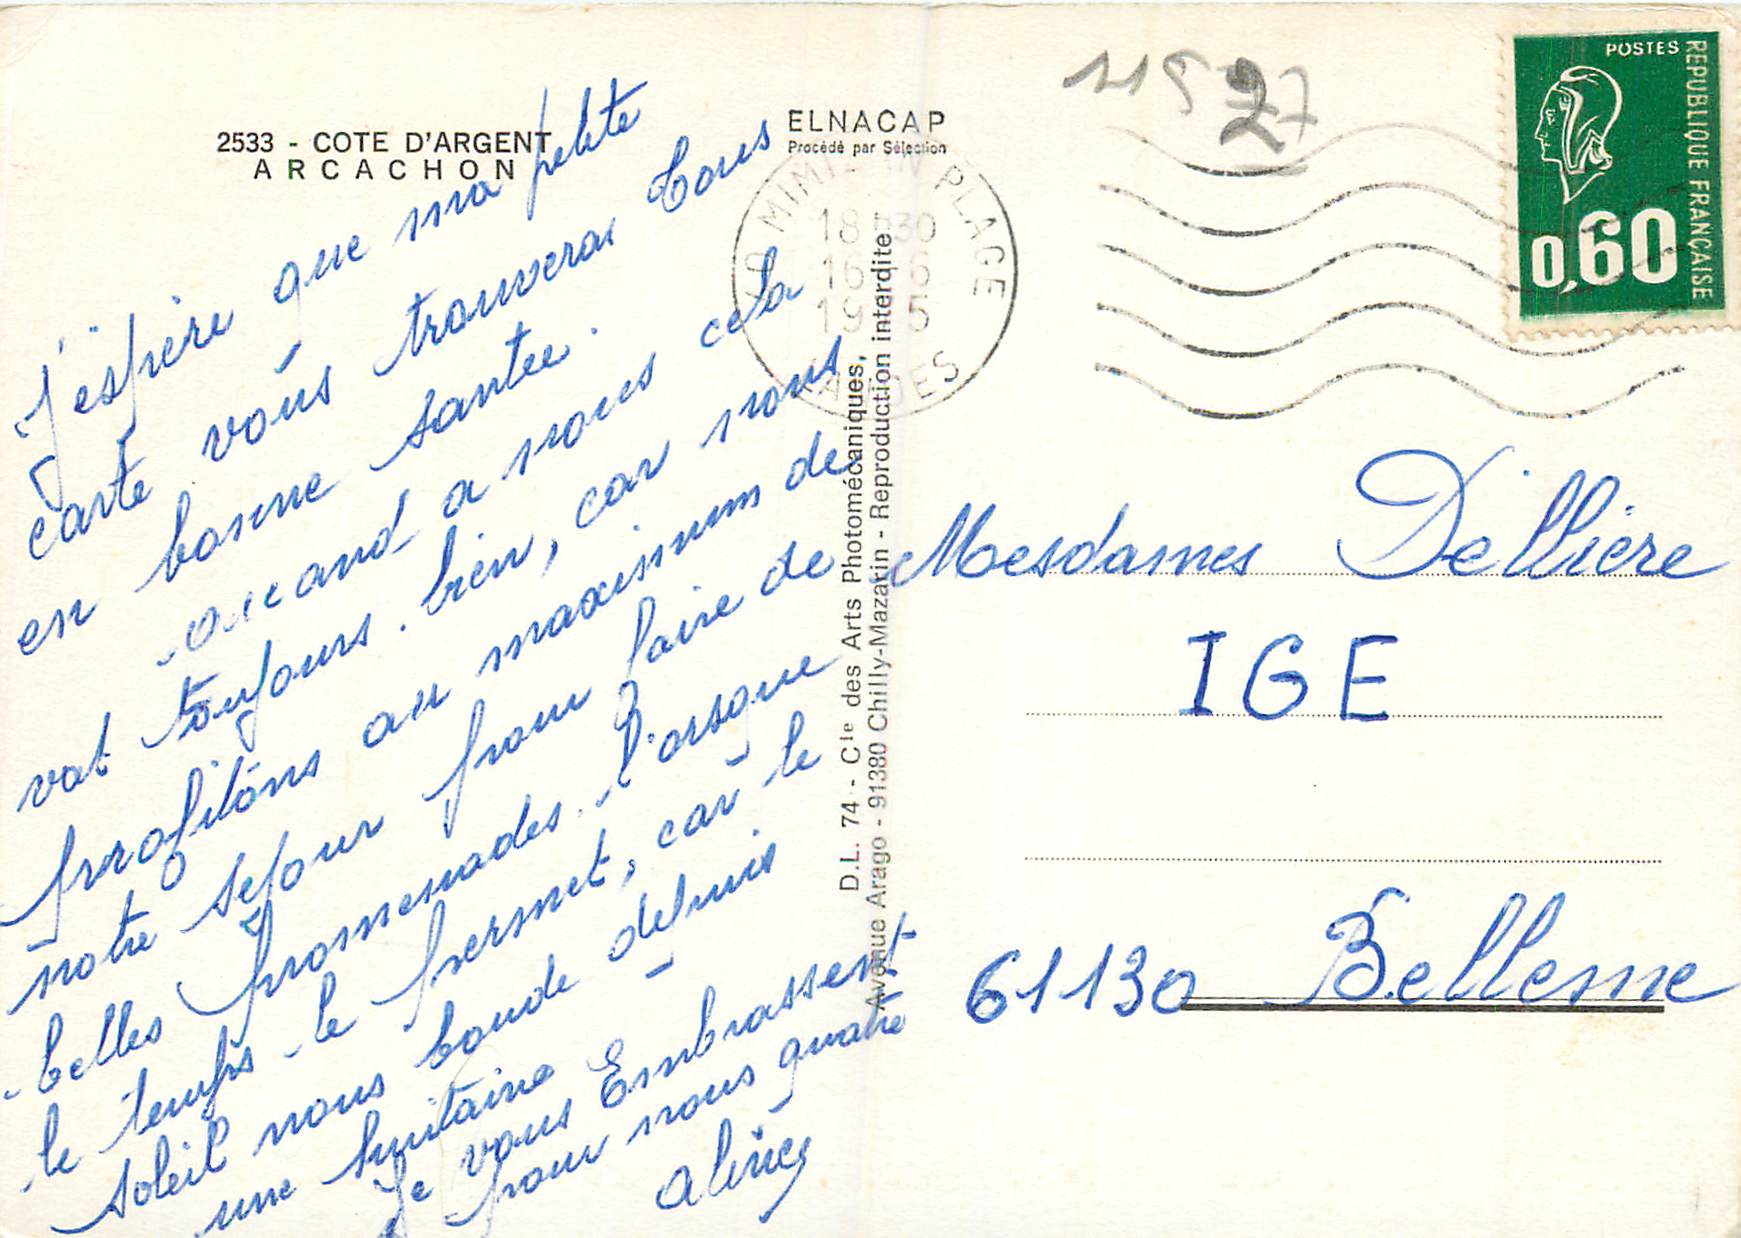 2533 - COTE D'ARGENT
ARCACHON
ELNACAP
Procédé par Sélection
j'espère que ma petite
carte vous trouveras tous
en bonne santée.
quand a nous cela
vat toujours bien, car nous
profitons au maximum de
notre sejour pour faire de
belles promenades. lorsque
le temps le permet, car le
soleil nous boude depuis
une huitaine
Je vous Embrassent
pour nous quatre
D.L. 74 - Cie des Arts Photomécaniques,
Avenue Arago - 91380 Chilly-Mazarin - Reproduction interdite
MIMIZAN PLAGE
18 30
16 6
LANDES
POSTES
REPUBLIQUE FRANÇAISE
0,60
Mesdames Dellière
IGE
61130 Bellesme